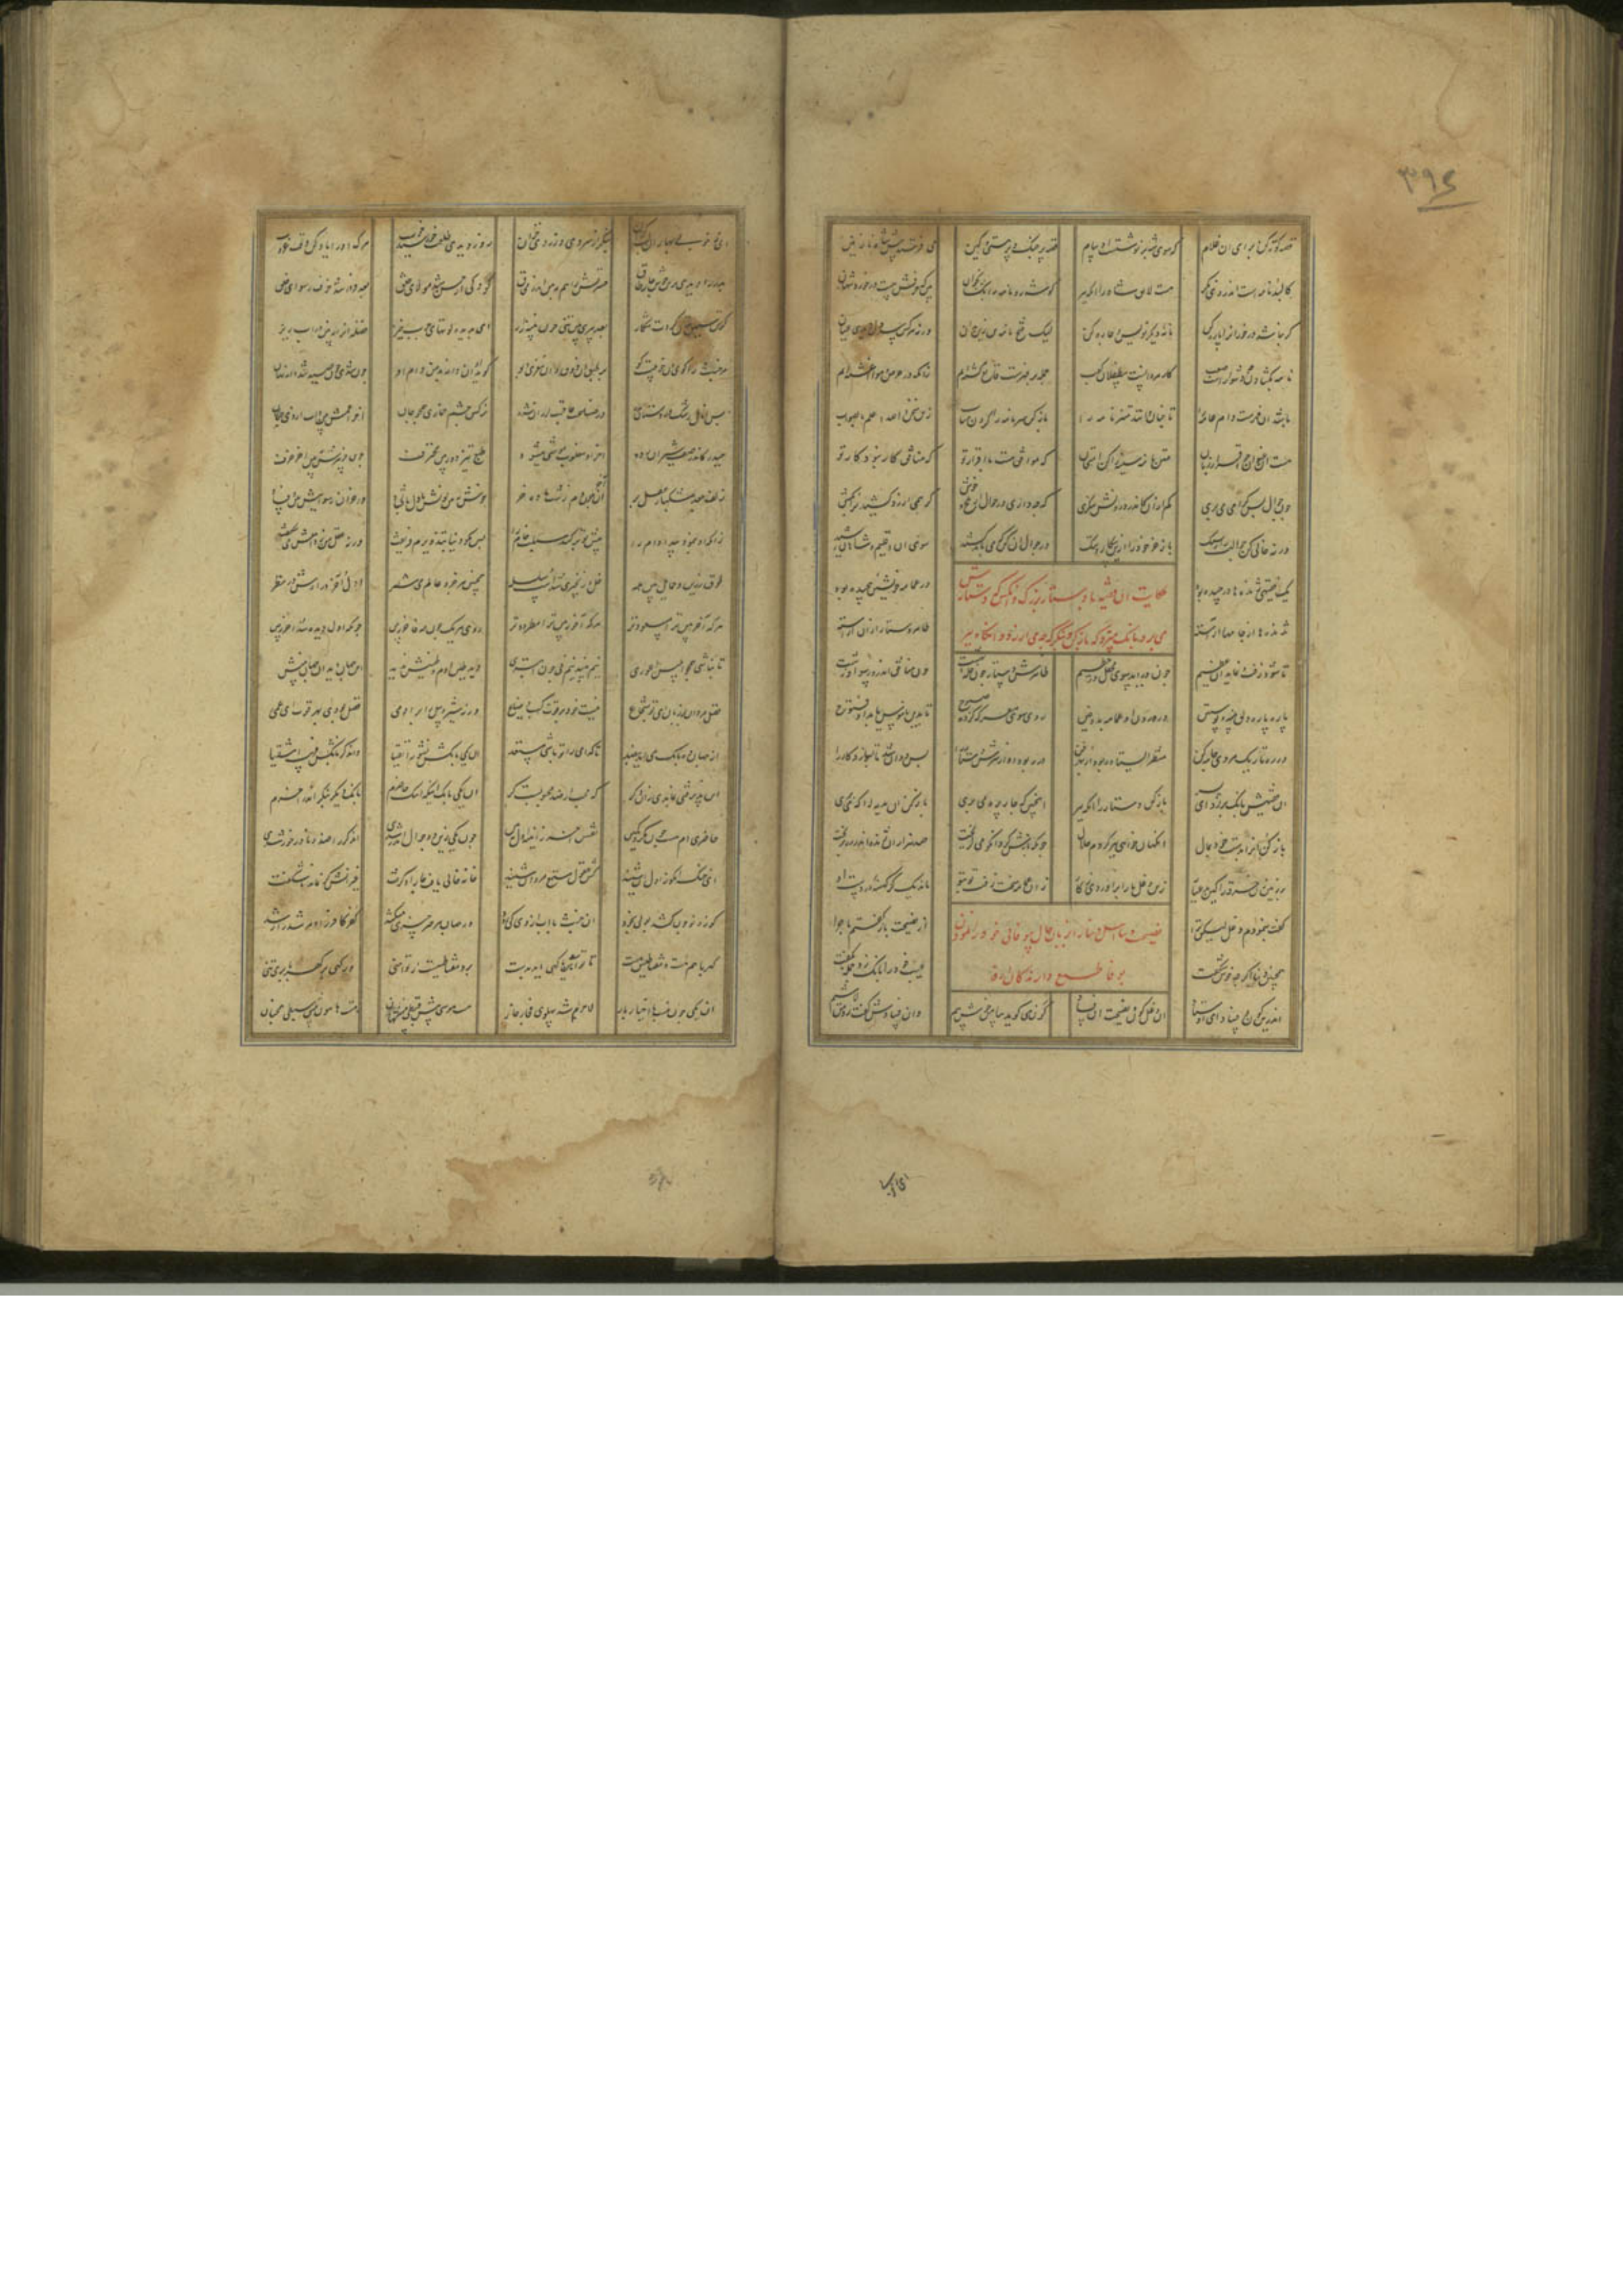 ۳۹٤
قصه کوته کن برای آن غلام که سوی شه برنوشتست او پیام قصه پر جنگ و پر هستی و کین می فرستد پیش شاه نازنین
کالبد نامه است اندر وی نگر هست لایق شاه را آنکه ببر گوشه رو نامه را بکشا بخوان بین که حرفش هست در خورد شهان
گر نباشد درخور آنرا پاره کن نامه دیگر نویس و چاره کن لیک فتح نامه تن زپ مدان ورنه هر کس سر دل دیدی عیان
نامه بکشادن چه دشوارست و صعب کار مردانست نه طفلان کعب جمله بر فهرست قانع گشته ایم زانکه در حرص و هوا آغشته ایم
باشد آن فهرست دامی عامه را تا چنان دانند متن نامه را باز کن سرنامه را گردن متاب زین سخن والله اعلم بالصواب
هست آن عنوان چو اقرار زبان متن نامه سینه را کن امتحان که موافق هست با اقرار تو که منافق کار نبود کار تو
چون جوالی بس گرانی می بری که چه داری در جوال از تلخ و خوش گر همی ارزد کشیدن را بکش
ورنه خالی کن جوالت را ز سنگ باز خر خود را ازین بیگار و ننگ در جوال آن کن که می باید کشید سوی شاهان
حکایت آن فقیه با دستار بزرگ و آنکس که دستارش
می برد بانگ میزد که باز کن و بنگر که چه می بری آنگاه ببر
یک فقیهی ژنده ها درچیده بود در عمامه خویش پیچیده بود
ژنده ها از جامها آراسته ظاهر دستار از آن آراسته
تا شود زفت و نماید آن عظیم چون درآید سوی محفل در حطیم ظاهرش دستار چون حله بهشت چون منافق اندرون رسوا و زشت
پاره پاره دلق و پنبه و پوستین در درون آن عمامه بد دفین روی سوی مدرسه کرده صبوح تا بدین ناموس یابد او فتوح
در ره تاریک مردی جامه کن منتظر استاده بود از بهر فن در ربود او از سرش دستار را پس دوان شد تا بسازد کار را
پس فقیهش بانگ برزد کای پسر باز کن دستار را آنگه ببر اینچنین که چار پره می پری باز کن آن هدیه را که می بری
باز کن آنرا بدست خود بمال آنگهان خواهی ببر کردم حلال چونکه بازش کرد آنکه می گریخت صد هزاران ژنده اندر ره بریخت
بر زمین زد خرقه را کای بی عیار زین دغل ما را برآوردی ز کار زان عمامه زفت ماند یک گز کهنه در دست او
گفت بنمودم دغل لیکن ترا از نصیحت باز گفتم ماجرا
نصیحت دنیا اهل دنیا را بزبان حال و بیوفایی خود را نمودن
بوفا طمع دارندگان از وی
همچنین دنیا اگر چه خوش شکفت عیب خود را بانگ زد و جمله گفت
اندرین کون و فساد ای اوستاد آن دغل کون و نصیحت آن فساد کون می گوید بیا من خوش پیم وان فسادش گفت رو من لاشیم
ای ز خوبی بهاران لب گزان بنگر آن سردی و زردی خزان روز دیدی طلعت خورشید خوب مرگ او را یاد کن وقت غروب
بدر را دیدی برین خوش چار طاق حسرتش را هم ببین اندر محاق کودکی از حسن شد مولای خلق بعد فردا شد خرف رسوای خلق
گر تن سیمین تنان کردت شکار بعد پیری بین تنی چون پنبه زار ای بدیده لوتهای چرب خیز فضله آنرا ببین در آب ریز
مر خبث را گو که آن خوبیت کو بر طبق آن ذوق و آن نغزی و بو گوید آن دانه بد من دام او چون شدی تو صید شد دانه نهان
بس انامل رشک استادان شده در صناعت عاقبت لرزان شده نرگس چشم خماری همچو جان آخر اعمش بین و آب از وی چکان
حیدری کاندر صف شیران رود آخر او مغلوب موشی میشود طبع تیز دوربین محترف چون خر پیرش ببین آخر خرف
زلف جعد مشکبار عقل بر آخر آن چون دم زشت خنگ خر
زانکه او بنمود پیدا دام را پیش تو برکند سبلت خام را پس مگو دنیا بتزویرم فریفت ورنه عقل من ز دامش می گریخت
طوق زرین و حمایل بین هله غل و زنجیری شدست و سلسله همچنین هر جزو عالم می شمر اول و آخر درآرش در نظر
هر که آخر بین تر او مسعودتر هر که آخور بین تر او مطرودتر روی هر یک چون مه فاخر ببین چونکه اول دیده شد آخر ببین
تا نباشی همچو ابلیس اعوری نیم بیند نیم نی چون ابتری دید طین آدم و دینش ندید این جهان دید آن جهان بینش ندید
فضل مردان بر زنان ای بو شجاع نیست بهر قوت و کسب و ضیاع ورنه شیر و پیل را بر آدمی فضل بودی بهر قوت ای عمی
از جهان دو بانگ می آید بضد تا کدامین را تو باشی مستعد آن یکی بانگش نشور اتقیا وان دگر بانگش فریب اشقیا
این پذیرفتی بماندی زان دگر که محب از ضد محبوبست کر آن یکی بانگ اینکه اینک حاضرم بانگ دیگر بنگر اندر آخرم
حاضری ام هست چون مکر و کمین نقش آخر ز آینه اول ببین چون یکی زین دو جوال اندر شدی آن دگر را ضد و نادرخور شدی
ای خنک آنکو ز اول آن شنید کش عقول و مسمع مردان شنید خانه خالی یافت جا را او گرفت غیر آنش کژ نماید یا شگفت
کوزه نو چون کشد بولی بخود آن خبث را آب در جهان هر چیز چیزی میکشد کفر کافر را و مرشد را رشد
کهربا هم هست و مغناطیس هست تا تو آهن یا کهی آیی بشست برد مغناطیست ار تو آهنی ور کهی بر کهربا بر می تنی
آن یکی چون نیست با اخیار یار لاجرم شد پهلوی فجار جار هست موسی پیش قبطی هست هامان پیش سبطی